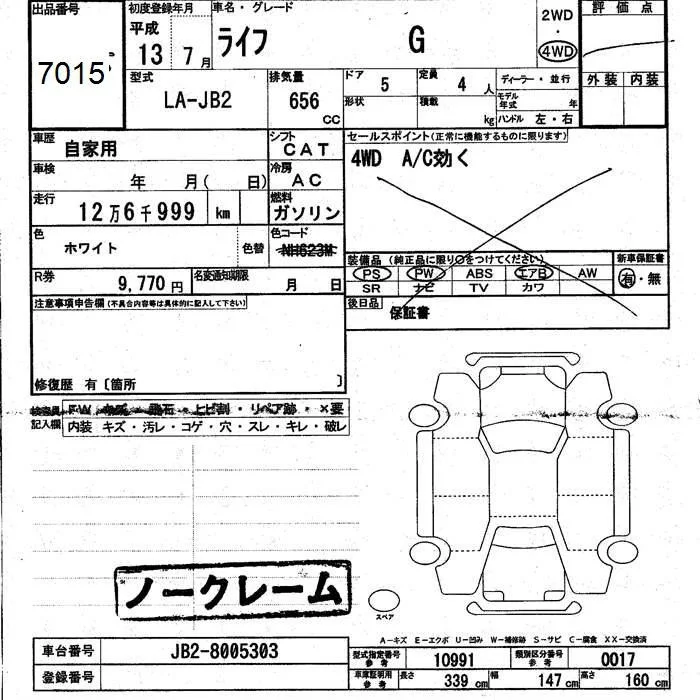 出品番号 初度登録年月 車名・グレード 2WD・4WD 評価点
7015 平成 13年 7月 ライフ G
外装 内装
型式 LA-JB2 排気量 656 CC ドア 5 定員 4 人 ディーラー・並行
形状 積載 kg モデル年式 年
ハンドル 左・右
車歴 自家用 シフト CAT セールスポイント(正常に機能するものに限ります)
車検 年 月( 日) 冷房 AC 4WD A/C効く
走行 12万6千999 km 燃料 ガソリン
色 ホワイト 色替 色コード NH623M
装備品(純正品に限り○をつけてください) 新車保証書
PS PW ABS エアB AW 有・無
SR ナビ TV カワ
R券 9,770円 名変通知期限 月 日
後日品 保証書
注意事項申告欄(不具合内容等は具体的に記入して下さい)
修復歴 有〔箇所 〕
検査員記入欄 FW キズ・飛石・ヒビ割・リペア跡・×要
内装 キズ・汚レ・コゲ・穴・スレ・キレ・破レ
ノークレーム
スペア
A-キズ E-エクボ U-凹み W-補修跡 S-サビ C-腐食 XX-交換済
車台番号 JB2-8005303
登録番号
型式指定番号 参考 10991 類別区分番号 参考 0017
車庫証明用 参考 長さ 339 cm 幅 147 cm 高さ 160 cm